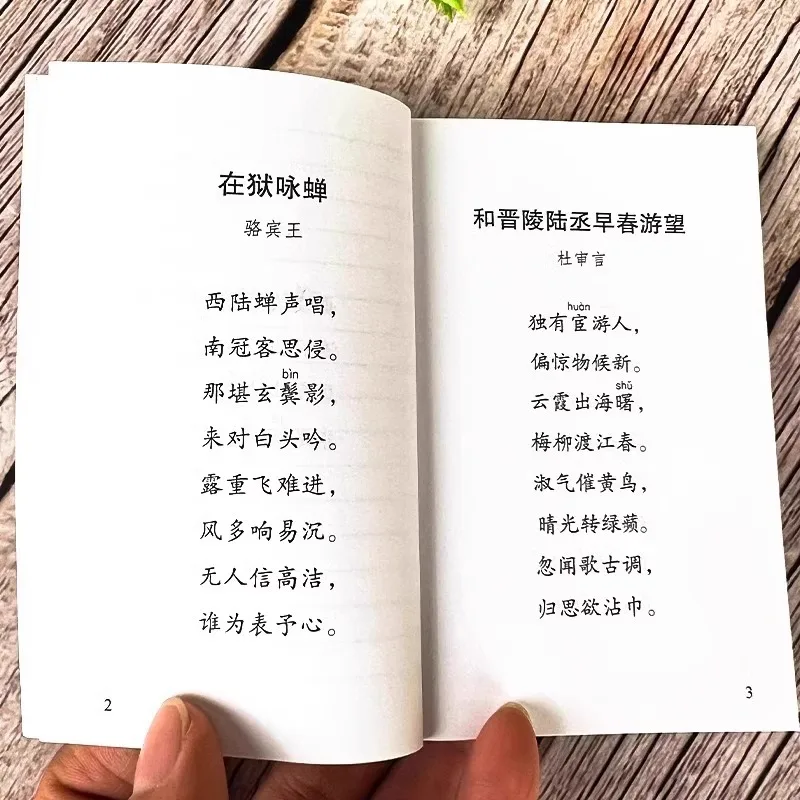 在狱咏蝉
骆宾王
西陆蝉声唱，
南冠客思侵。
bìn
那堪玄鬓影，
来对白头吟。
露重飞难进，
风多响易沉。
无人信高洁，
谁为表予心。
2
和晋陵陆丞早春游望
杜审言
huàn
独有宦游人，
偏惊物候新。
shǔ
云霞出海曙，
梅柳渡江春。
淑气催黄鸟，
晴光转绿蘋。
忽闻歌古调，
归思欲沾巾。
3